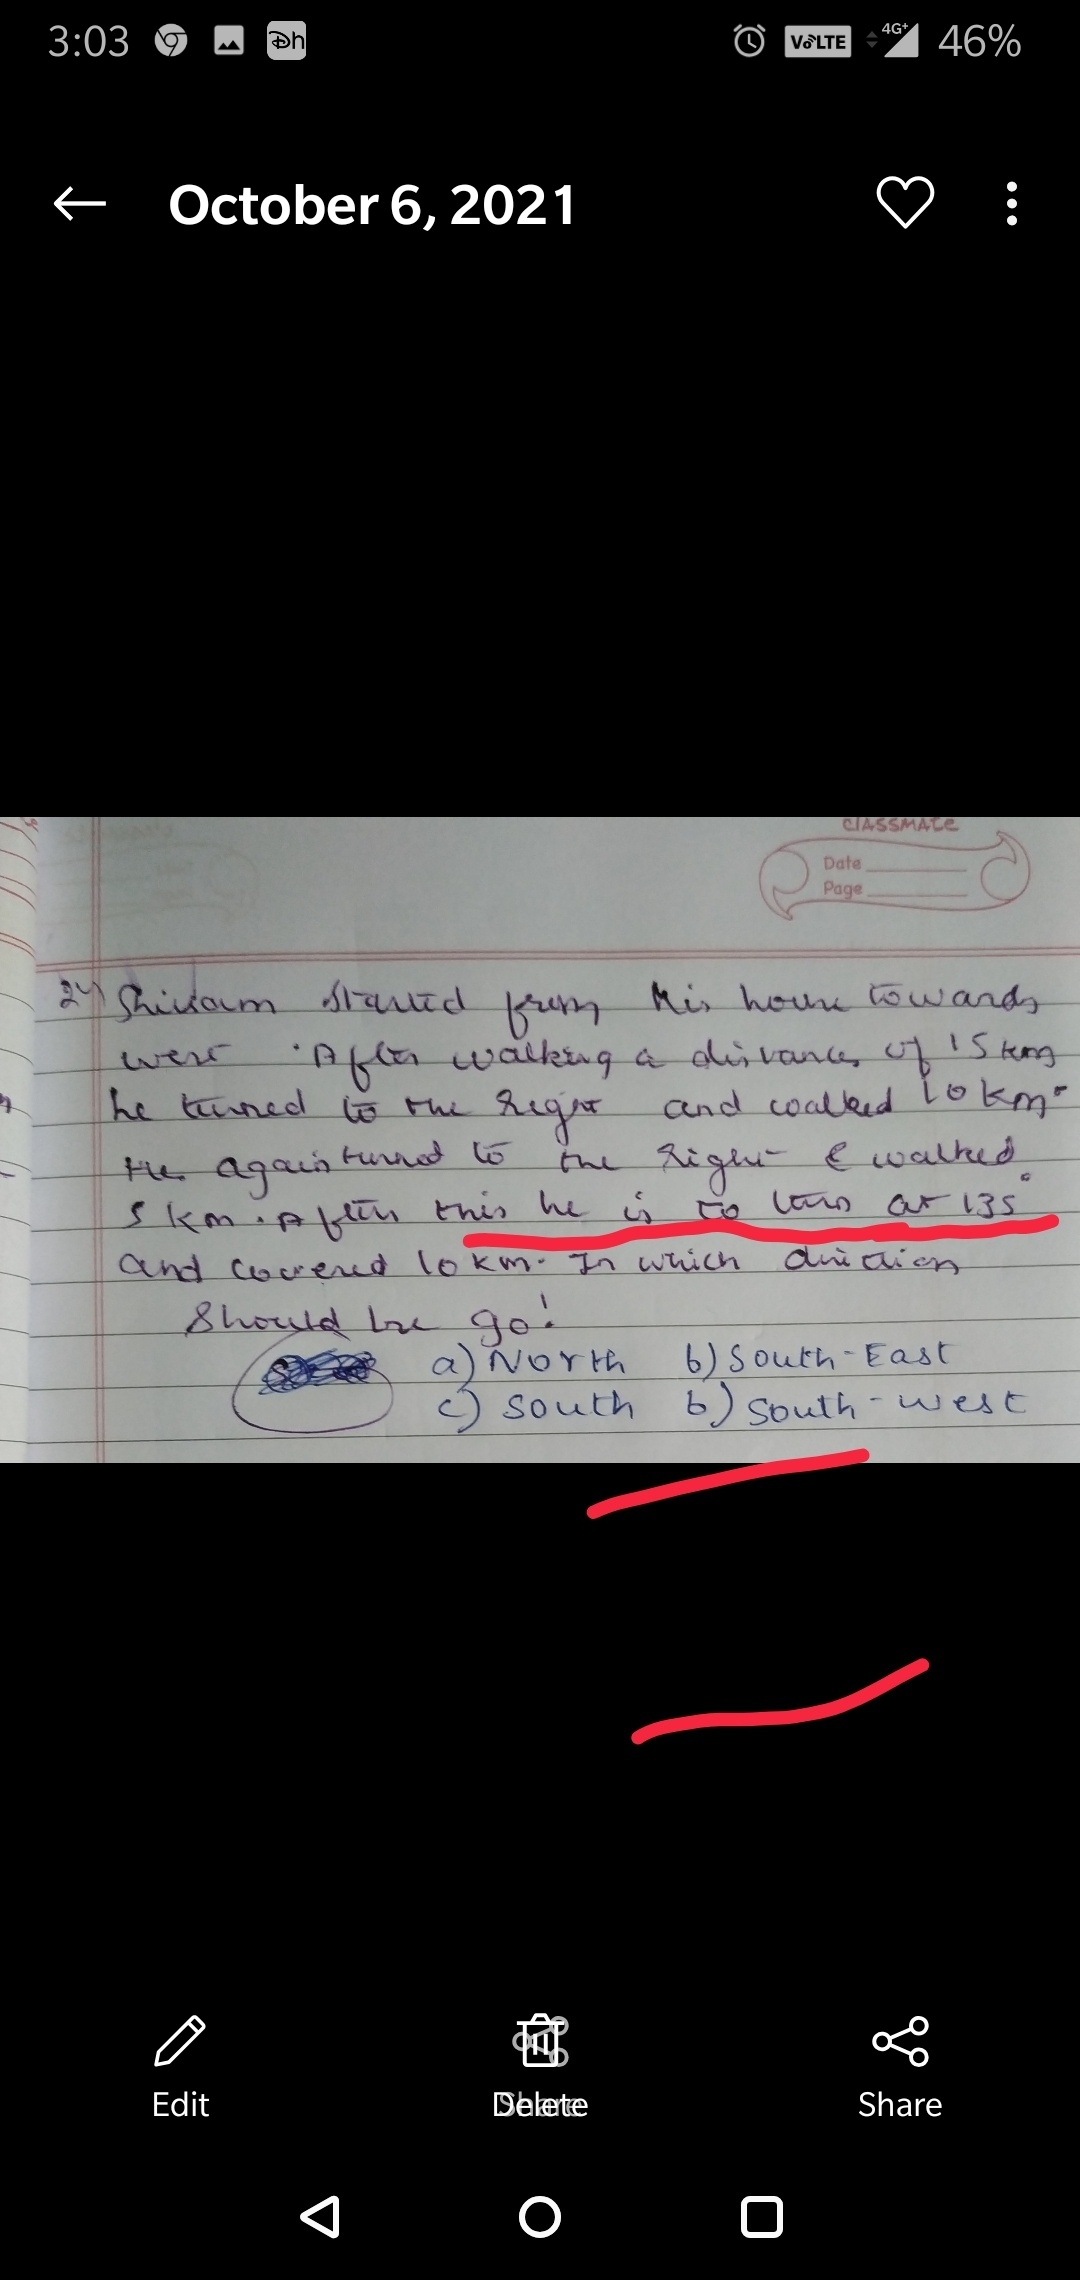 3:03 Dh VoLTE 4G+ 46%
October 6, 2021
CLASSMATE
Date
Page
24) Shivam started from his house towards
west. After walking a distance of 15 km
he turned to the right and walked 10 km.
He again turned to the right & walked
5 km. After this he is to turn at 135°
and covered 10 km. In which direction
should he go!
a) North b) South-East
c) South b) South-west
Edit Delete Share Share